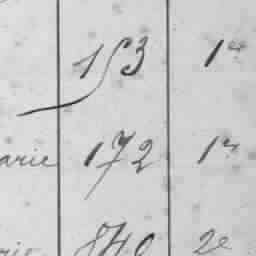 153 1er
arie 172 1er
840 2e